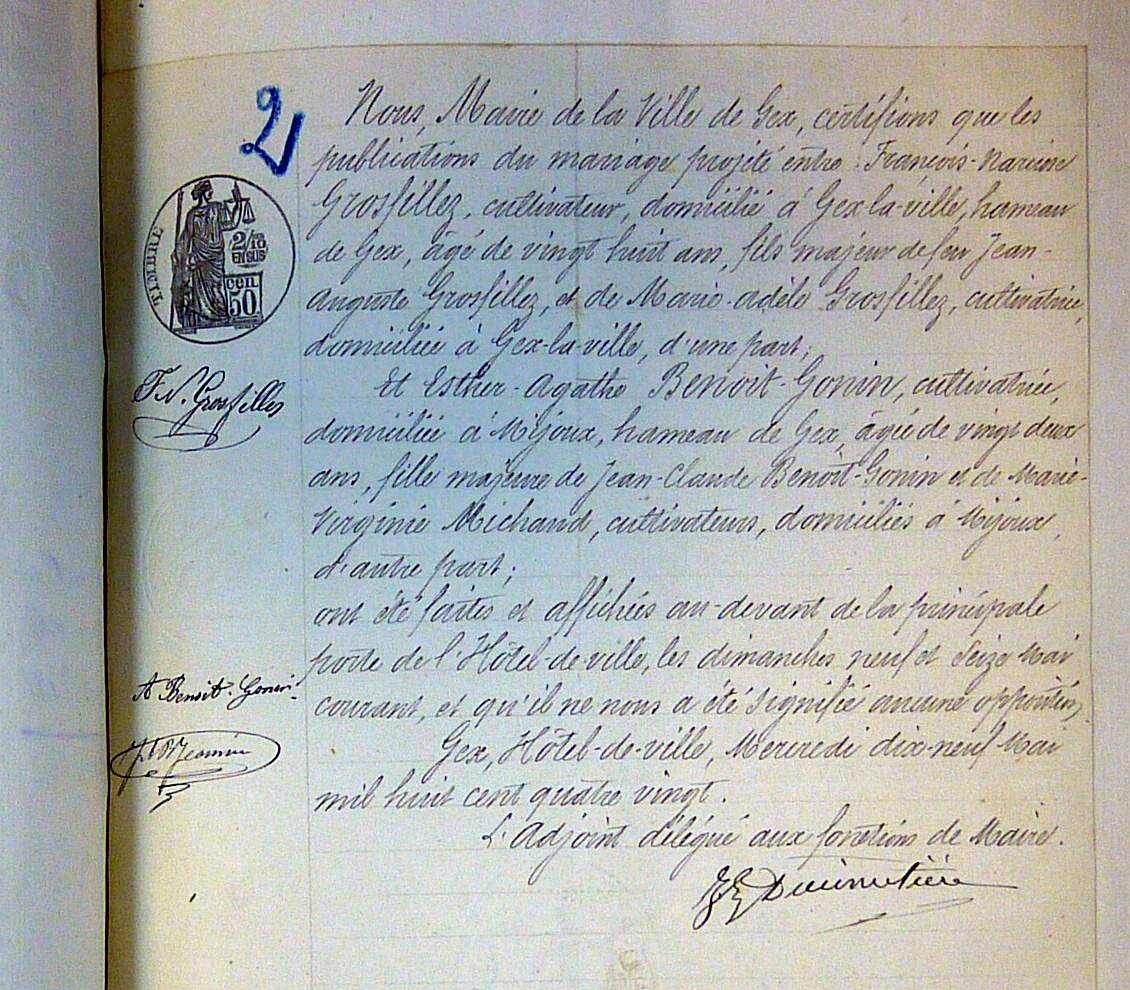 2
Nous, Maire de la Ville de Gex, certifions que les
publications du mariage projeté entre François-Narcisse
Grosfillez, cultivateur, domicilié à Gex-la-ville, hameau
de Gex, âgé de vingt huit ans, fils majeur de feu Jean-
Auguste Grosfillez, et de Marie-Adèle Grosfillez, cultivatrice,
domiciliée à Gex-la-ville, d'une part;
Et Esther-Agathe Benoit-Gonin, cultivatrice,
domiciliée à Mijoux, hameau de Gex, âgée de vingt deux
ans, fille majeure de Jean-Claude Benoit-Gonin et de Marie-
Virginie Michaud, cultivateurs, domiciliés à Mijoux,
d'autre part;
ont été faites et affichées au-devant de la principale
porte de l'Hôtel-de-ville, les dimanches neuf et Seize Mai
courant, et qu'il ne nous a été signifié aucune opposition,
Gex, Hôtel-de-ville, Mercredi dix-neuf Mai
mil huit cent quatre vingt.
L'Adjoint délégué aux fonctions de Maire.
TIMBRE
2/10
EN SUS
50
cen
F. N. Grosfillez
A Benoit-Gonin